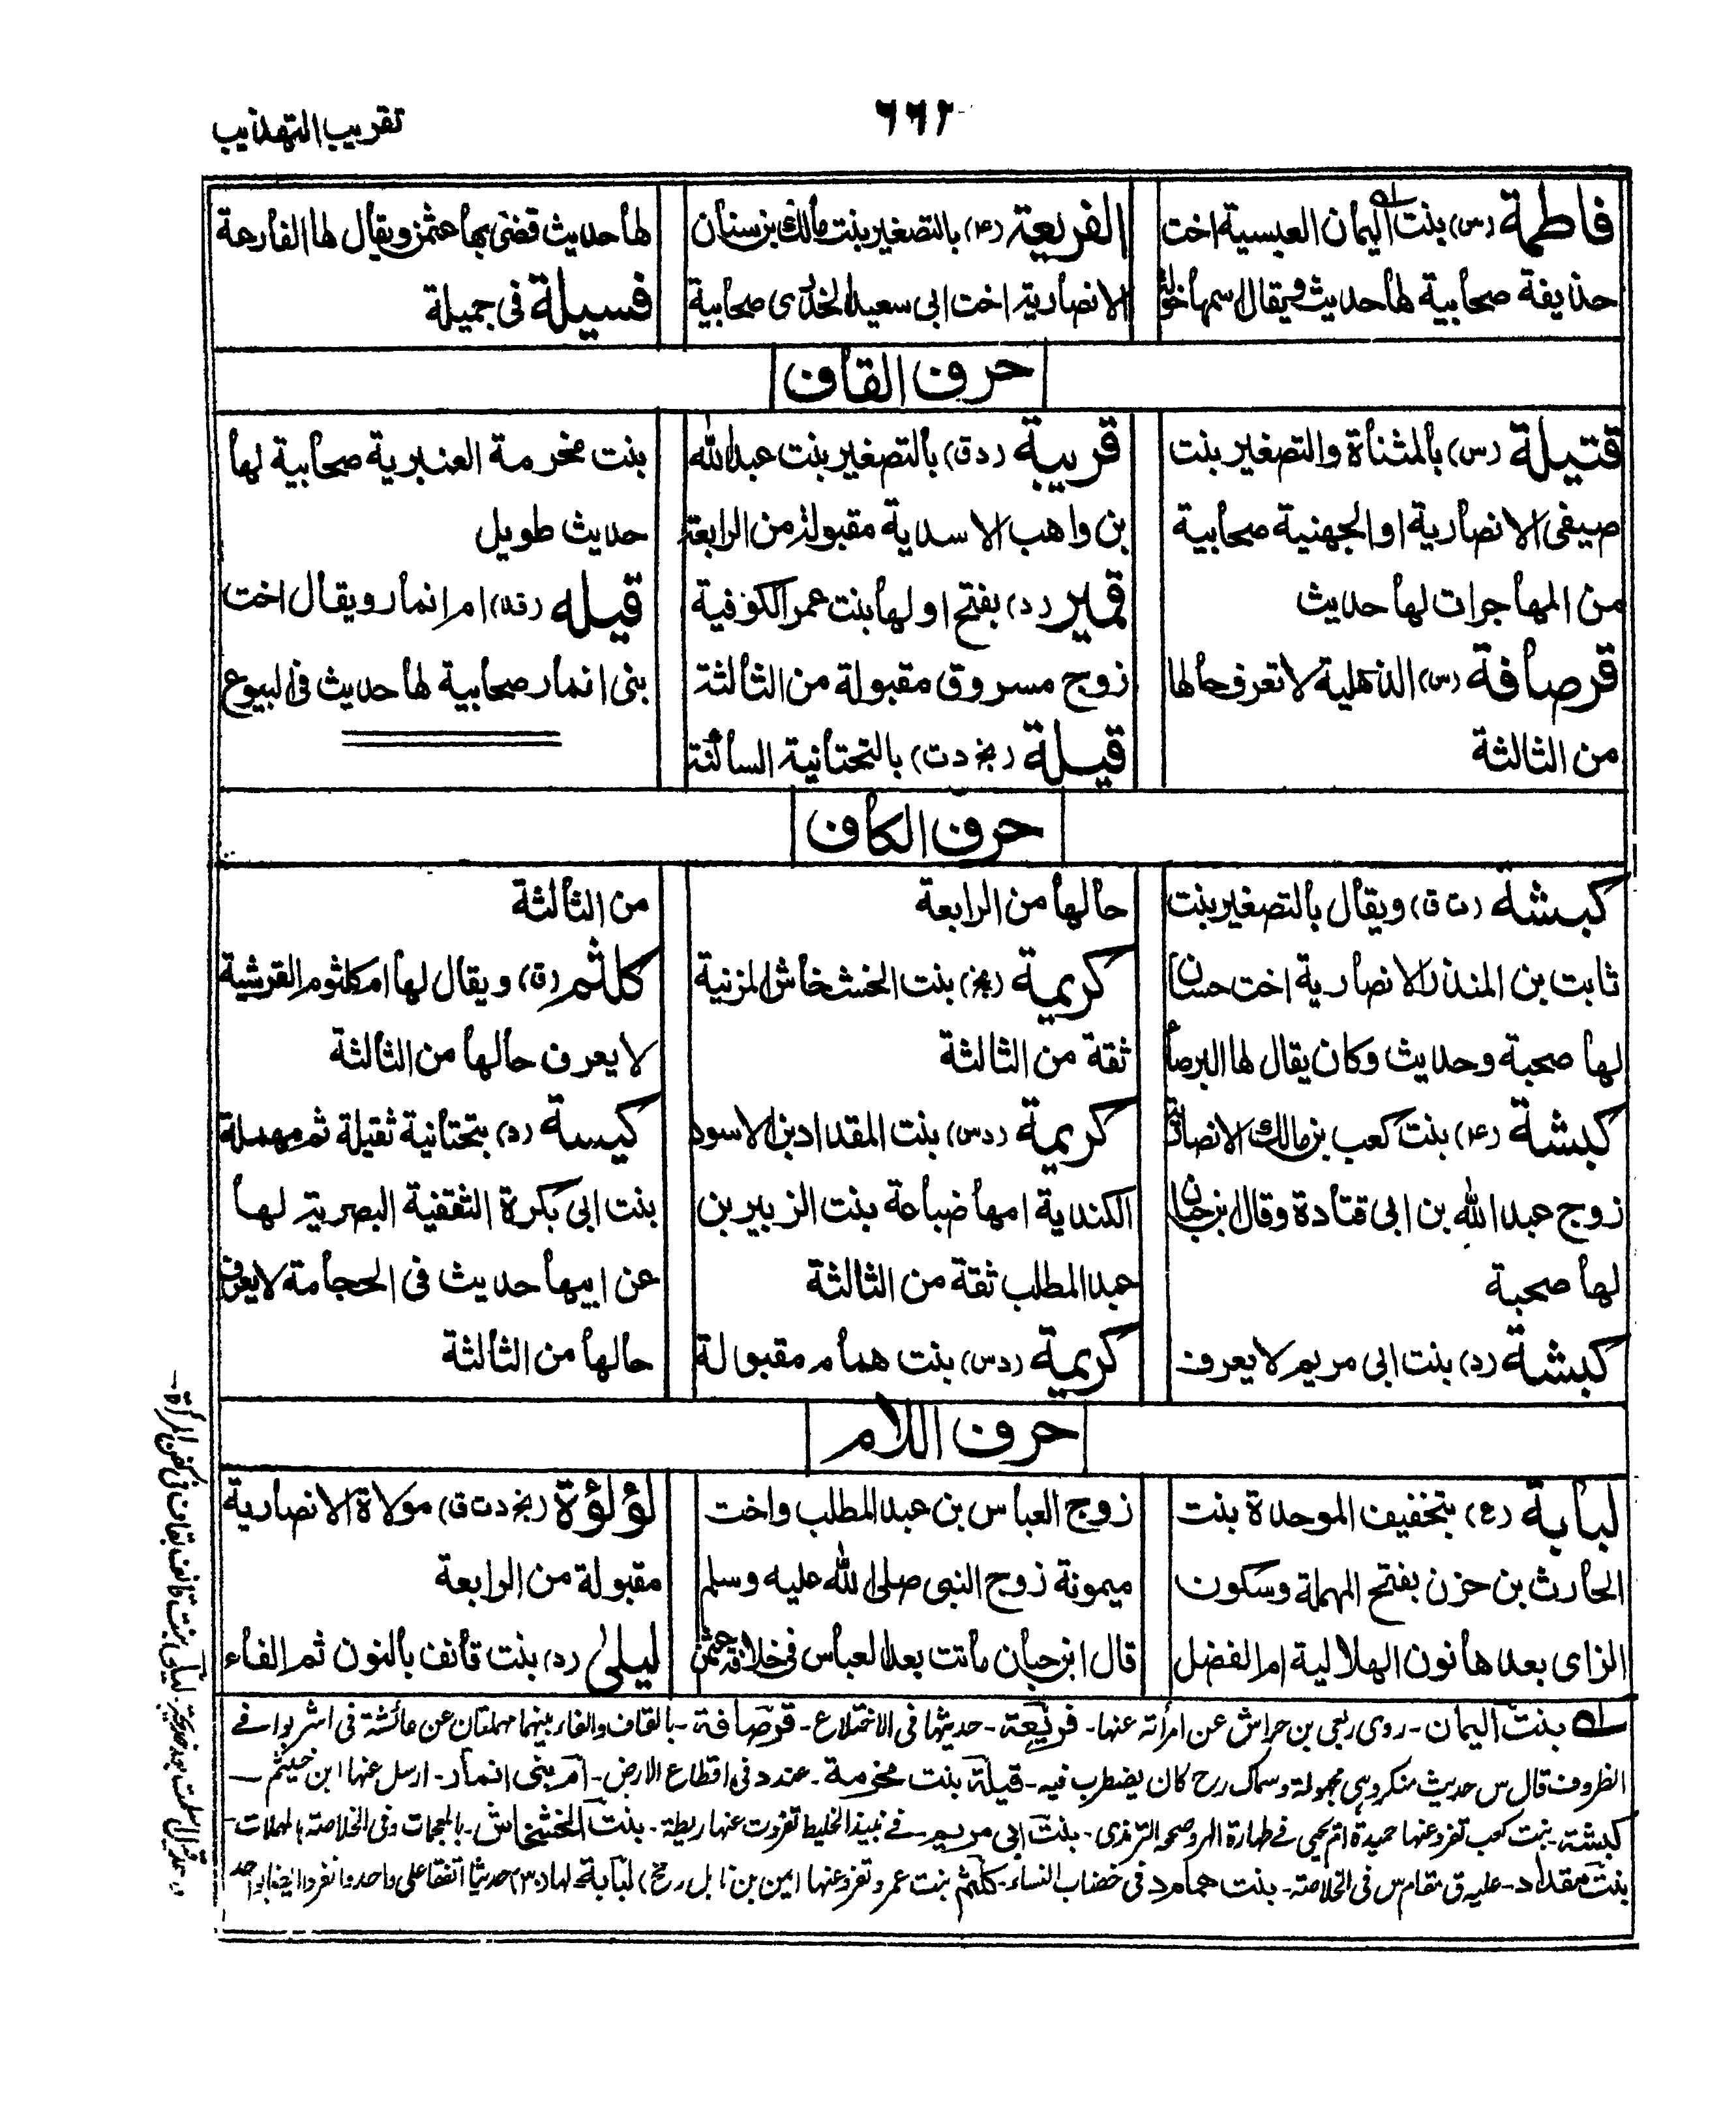 تقريب التهذيب
٦٦٢
فاطمة (س) بنت اليمان العبسية اخت
حذيفة صحابية لها حديث ويقال اسمها خولة
الفريعة (٤) بالتصغير بنت مالك بن سنان
الانصارية اخت ابى سعيد الخدرى صحابية
لها حديث قضى بها عثمن ويقال لها الفارعة
فسيلة فى جميلة
حرف القاف
قتيلة (س) بالمثناة والتصغير بنت
صيفى الانصارية او الجهنية صحابية
من المهاجرات لها حديث
قرصافة (س) الذهلية لا تعرف حالها
من الثالثة
قريبة (د ق) بالتصغير بنت عبد الله
بن واهب الاسدية مقبولة من الرابعة
قمير (د) بفتح اولها بنت عمر الكوفية
زوج مسروق مقبولة من الثالثة
قيلة (بخ د ت) بالتحتانية الساكنة
بنت مخرمة العنبرية صحابية لها
حديث طويل
قيله (ق) ام انمار ويقال اخت
بنى انمار صحابية لها حديث فى البيوع
حرف الكاف
كبشة (ت ق) ويقال بالتصغير بنت
ثابت بن المنذر الانصارية اخت حسان
لها صحبة وحديث وكان يقال لها البرصا
كبشة (٤) بنت كعب بن مالك الانصارية
زوج عبد الله بن ابى قتادة وقال ابن حبان
لها صحبة
كبشة (د) بنت ابى مريم لا يعرف
حالها من الرابعة
كريمة (بخ) بنت الخشخاش المزنية
ثقة من الثالثة
كريمة (د س) بنت المقداد بن الاسود
الكندية امها ضباعة بنت الزبير بن
عبد المطلب ثقة من الثالثة
كريمة (د س) بنت همام مقبولة
من الثالثة
كلثم (ق) ويقال لها ام كلثوم القرشية
لا يعرف حالها من الثالثة
كيسة (د) بتحتانية ثقيلة ثم مهملة
بنت ابى بكرة الثقفية البصرية لها
عن ابيها حديث فى الحجامة لا يعرف
حالها من الثالثة
حرف اللام
لبابة (ع) بتخفيف الموحدة بنت
الحارث بن حزن بفتح المهملة وسكون
الزاى بعدها نون الهلالية ام الفضل
زوج العباس بن عبد المطلب واخت
ميمونة زوج النبى صلى الله عليه وسلم
قال ابن حبان ماتت بعد العباس فى خلافة عثمن
لؤلؤة (بخ د ت ق) مولاة الانصارية
مقبولة من الرابعة
ليلى (د) بنت قانف بالنون ثم الفاء
له بنت اليمان - روى ربعى بن حراش عن امرأته عنها - فريعة - حديثها فى الاختلاع - قرصافة - بالقاف والفاء بينهما مهملتان عن عائشة فى اشربوا فى
الظروف قال س حديث منكر وهى مجهولة وسماك رح كان يضطرب فيه - قيلة بنت مخرمة - عند د فى اقطاع الارض - ام بنى انمار - ارسل عنها ابن خيثم -
كبشة - بنت كعب تفرد عنها حميدة ام يحيى فى طهارة الهر وصححه الترمذى - بنت ابى مريم - فى نبيذ الخليط تفردت عنها ريطة - بنت الخشخاش - بالمعجمات وفى الخلاصة بمهملات -
بنت مقداد - عليه ق مقام س فى الخلاصة - بنت همام د فى خضاب النساء - كلثم بنت عمرو تفرد عنها ايمن بن نابل - لبابة لها (٣٠) حديثا اتفقا على واحد وانفرد البخارى بواحد
ليلى بنت قانف بقاف فى كفن المرأة -